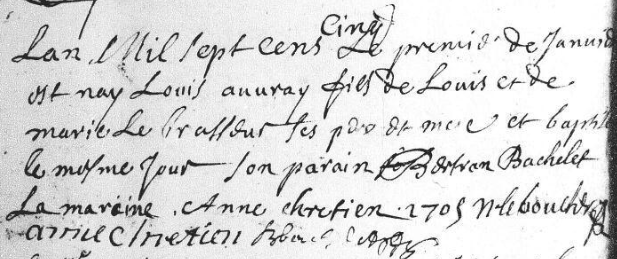 Lan Mil sept cens Cinq Le premier de Janvi
est nay Louis auvray fils de Louis et de
marie Le brasseur ses pere et mere et baptise
le mesme Jour son parain Bertran Bachelet
La mareine . Anne chretien . 1705 N leboucher
anne Chretien